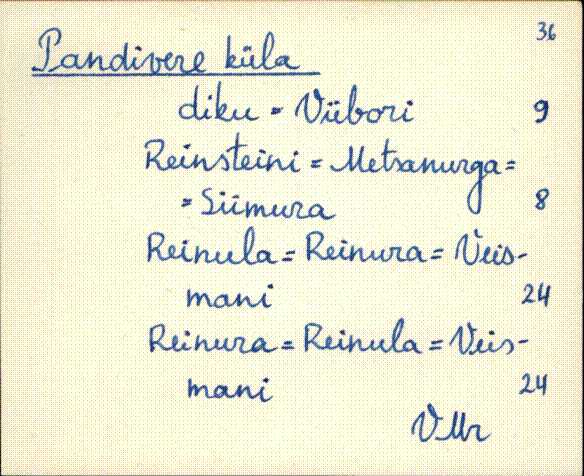 36
Pandivere küla
diku = Viibori 9
Reinsteini = Metsanurga =
= Siimura 8
Reinula = Reinura = Veis-
mani 24
Reinura = Reinula = Veis-
mani 24
VMr